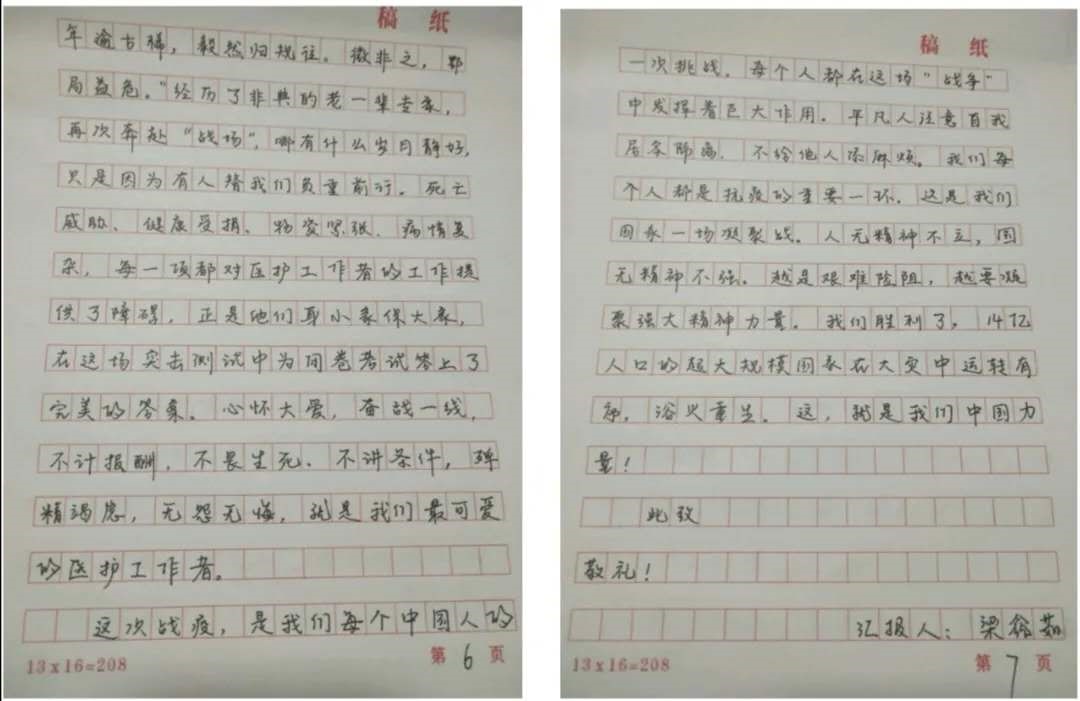 稿 纸
年逾古稀，毅然归规往。微非之，鄂
局益危。"经历了非典的老一辈专家，
再次奔赴"战场"，哪有什么岁月静好，
只是因为有人替我们负重前行。死亡
威胁、健康受损、物资紧张、病情复
杂，每一项都对医护工作者的工作提
供了障碍，正是他们舍小家保大家，
在这场突击测试中为闭卷考试答上了
完美的答案。心怀大爱，奋战一线，
不计报酬，不畏生死，不讲条件，殚
精竭虑，无怨无悔，就是我们最可爱
的医护工作者。
这次战疫，是我们每个中国人的
13×16=208
第 6 页
稿 纸
一次挑战，每个人都在这场"战争"
中发挥着巨大作用。平凡人注意自我
居家隔离，不给他人添麻烦。我们每
个人都是抗疫的重要一环。这是我们
国家一场凝聚战。人无精神不立，国
无精神不强。越是艰难险阻，越要凝
聚强大精神力量。我们胜利了，14亿
人口的超大规模国家在大灾中运转有
序，浴火重生。这，就是我们中国力
量！
此致
敬礼！
汇报人：梁裕茹
13×16=208
第 7 页